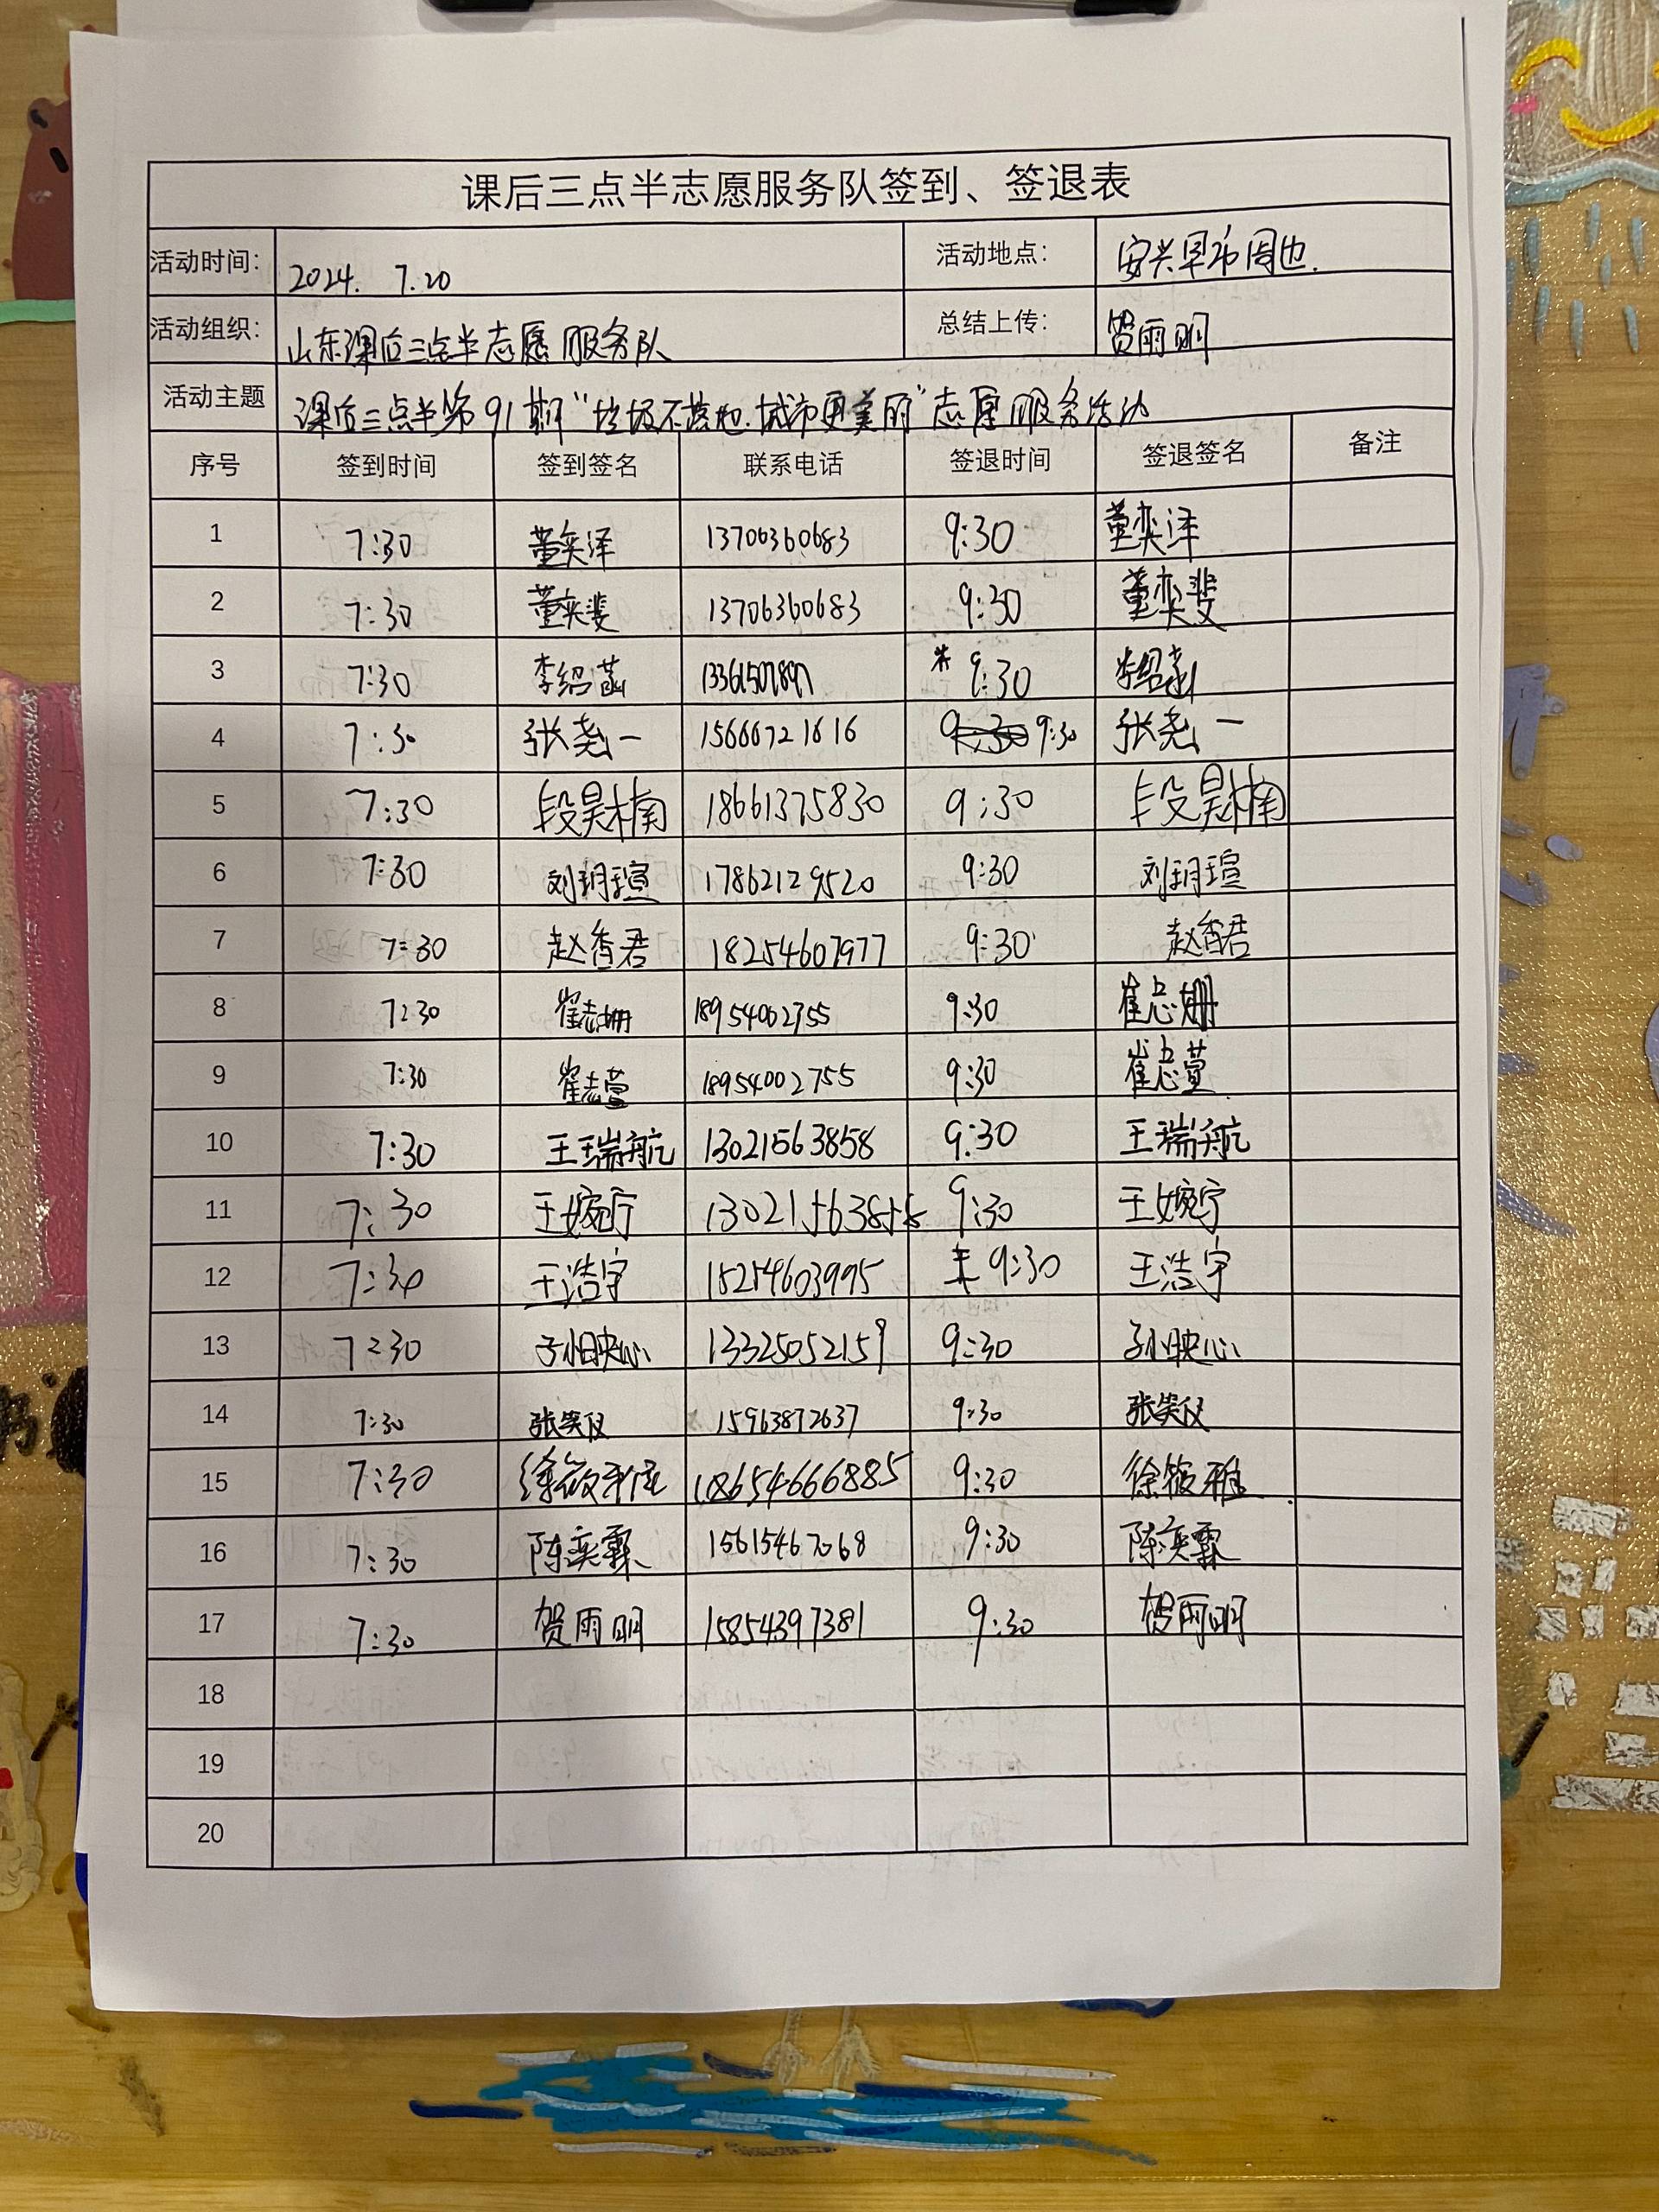 课后三点半志愿服务队签到、签退表
活动时间: 2024. 7.20 活动地点: 安兴早市周边.
活动组织: 山东课后三点半志愿服务队 总结上传: 贺雨明
活动主题 课后三点半第91期“垃圾不落地.城市更美丽”志愿服务活动
序号 签到时间 签到签名 联系电话 签退时间 签退签名 备注
1 7:30 董奕泽 13706360683 9:30 董奕泽
2 7:30 董奕斐 13706360683 9:30 董奕斐
3 7:30 李绍菡 9:30
4 7:30 张尧一 15666721616 9:30 张尧一
5 7:30 段昊楠 18661375830 9:30 段昊楠
6 7:30 刘玥瑄 17862129520 9:30 刘玥瑄
7 7:30 赵香君 18254607977 9:30 赵香君
8 7:30 崔志姗 18954002755 9:30 崔志姗
9 7:30 崔志萱 18954002755 9:30 崔志萱
10 7:30 王瑞航 13021563858 9:30 王瑞航
11 7:30 王婉宁 13021563858 9:30 王婉宁
12 7:30 王浩宇 15254603995 9:30 王浩宇
13 7:30 孙映心 13325052159 9:30 孙映心
14 7:30 张笑仪 15963872637 9:30 张笑仪
15 7:30 徐筱雅 18654666885 9:30 徐筱雅
16 7:30 陈奕霖 15615467068 9:30 陈奕霖
17 7:30 贺雨明 15854397381 9:30 贺雨明
18
19
20